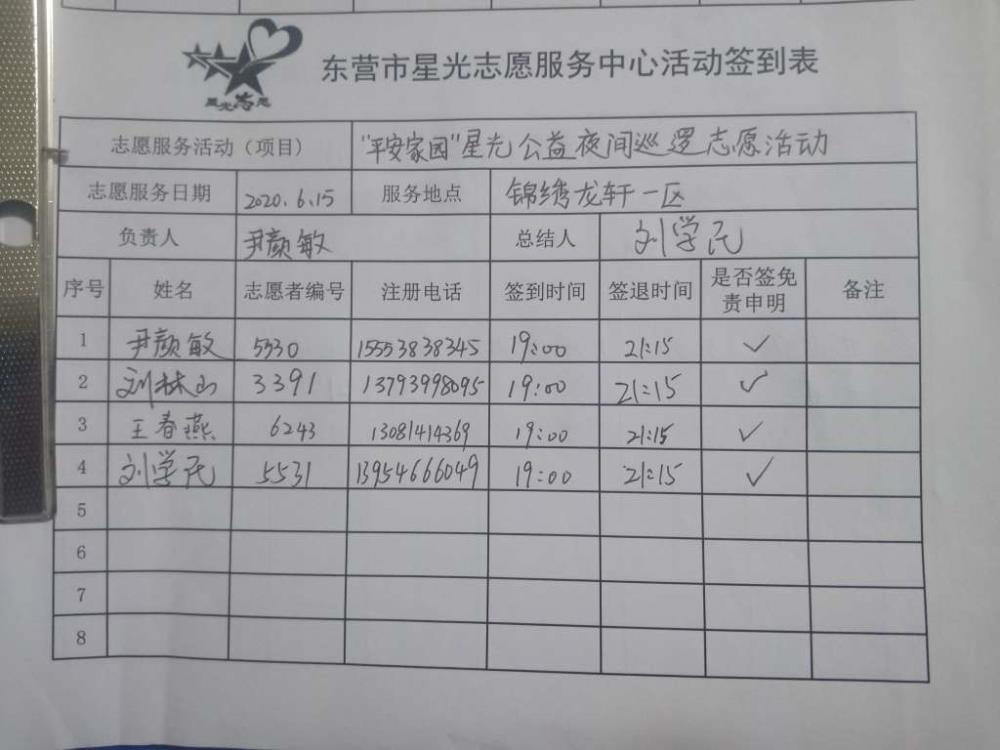 星光志愿
东营市星光志愿服务中心活动签到表
志愿服务活动（项目） "平安家园"星光公益夜间巡逻志愿活动
志愿服务日期 2020.6.15 服务地点 锦绣龙轩一区
负责人 尹颜敏 总结人 刘学民
序号 姓名 志愿者编号 注册电话 签到时间 签退时间 是否签免责申明 备注
1 尹颜敏 5530 15553838345 19:00 21:15 ✓
2 刘林山 3391 13793998095 19:00 21:15 ✓
3 王春燕 6243 13081414369 19:00 21:15 ✓
4 刘学民 5531 13954666049 19:00 21:15 ✓
5
6
7
8